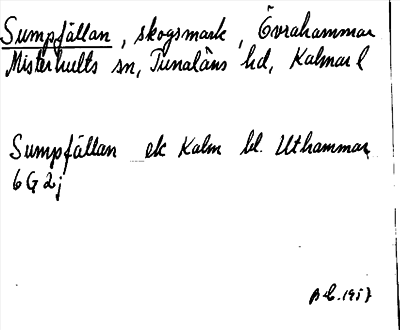 Sumpfällan, skogsmark, Övrahammar
Misterhults sn, Tunaläns hd, Kalmar l
Sumpfällan ek Kalm bl. Uthammar
6G2j
1957